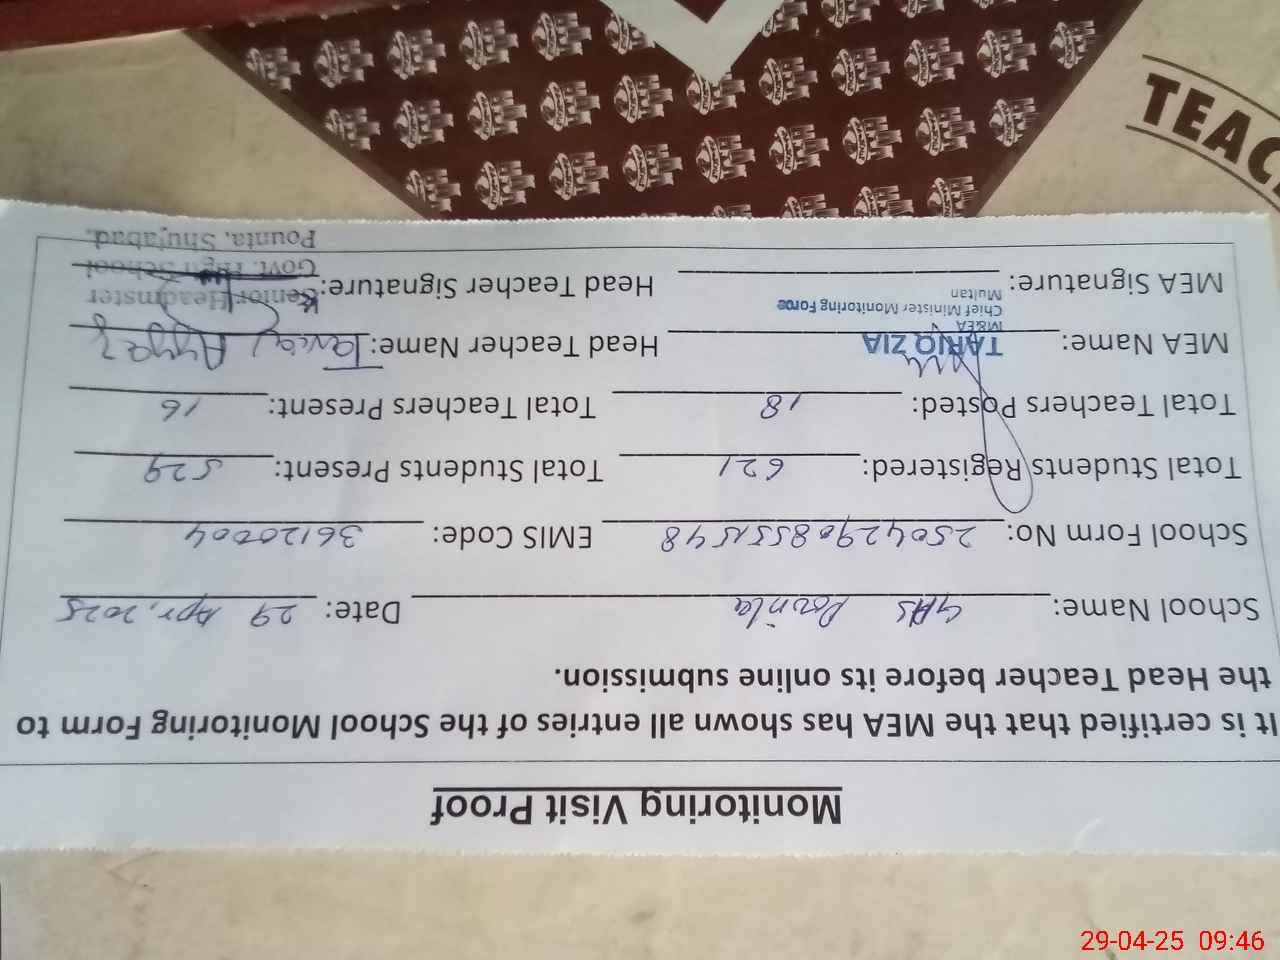 Monitoring Visit Proof
It is certified that the MEA has shown all entries of the School Monitoring Form to
the Head Teacher before its online submission.
School Name: GHS Pounta Date: 29 Apr, 2025
School Form No: 25042908551548 EMIS Code: 36120004
Total Students Registered: 621 Total Students Present: 529
Total Teachers Posted: 18 Total Teachers Present: 16
MEA Name: TARIQ ZIA Head Teacher Name:
M&EA
Chief Minister Monitoring Force
Multan
MEA Signature: Head Teacher Signature:
Senior Headmster
Govt. High School
Pounta, Shujabad.
TEAC
29-04-25 09:46